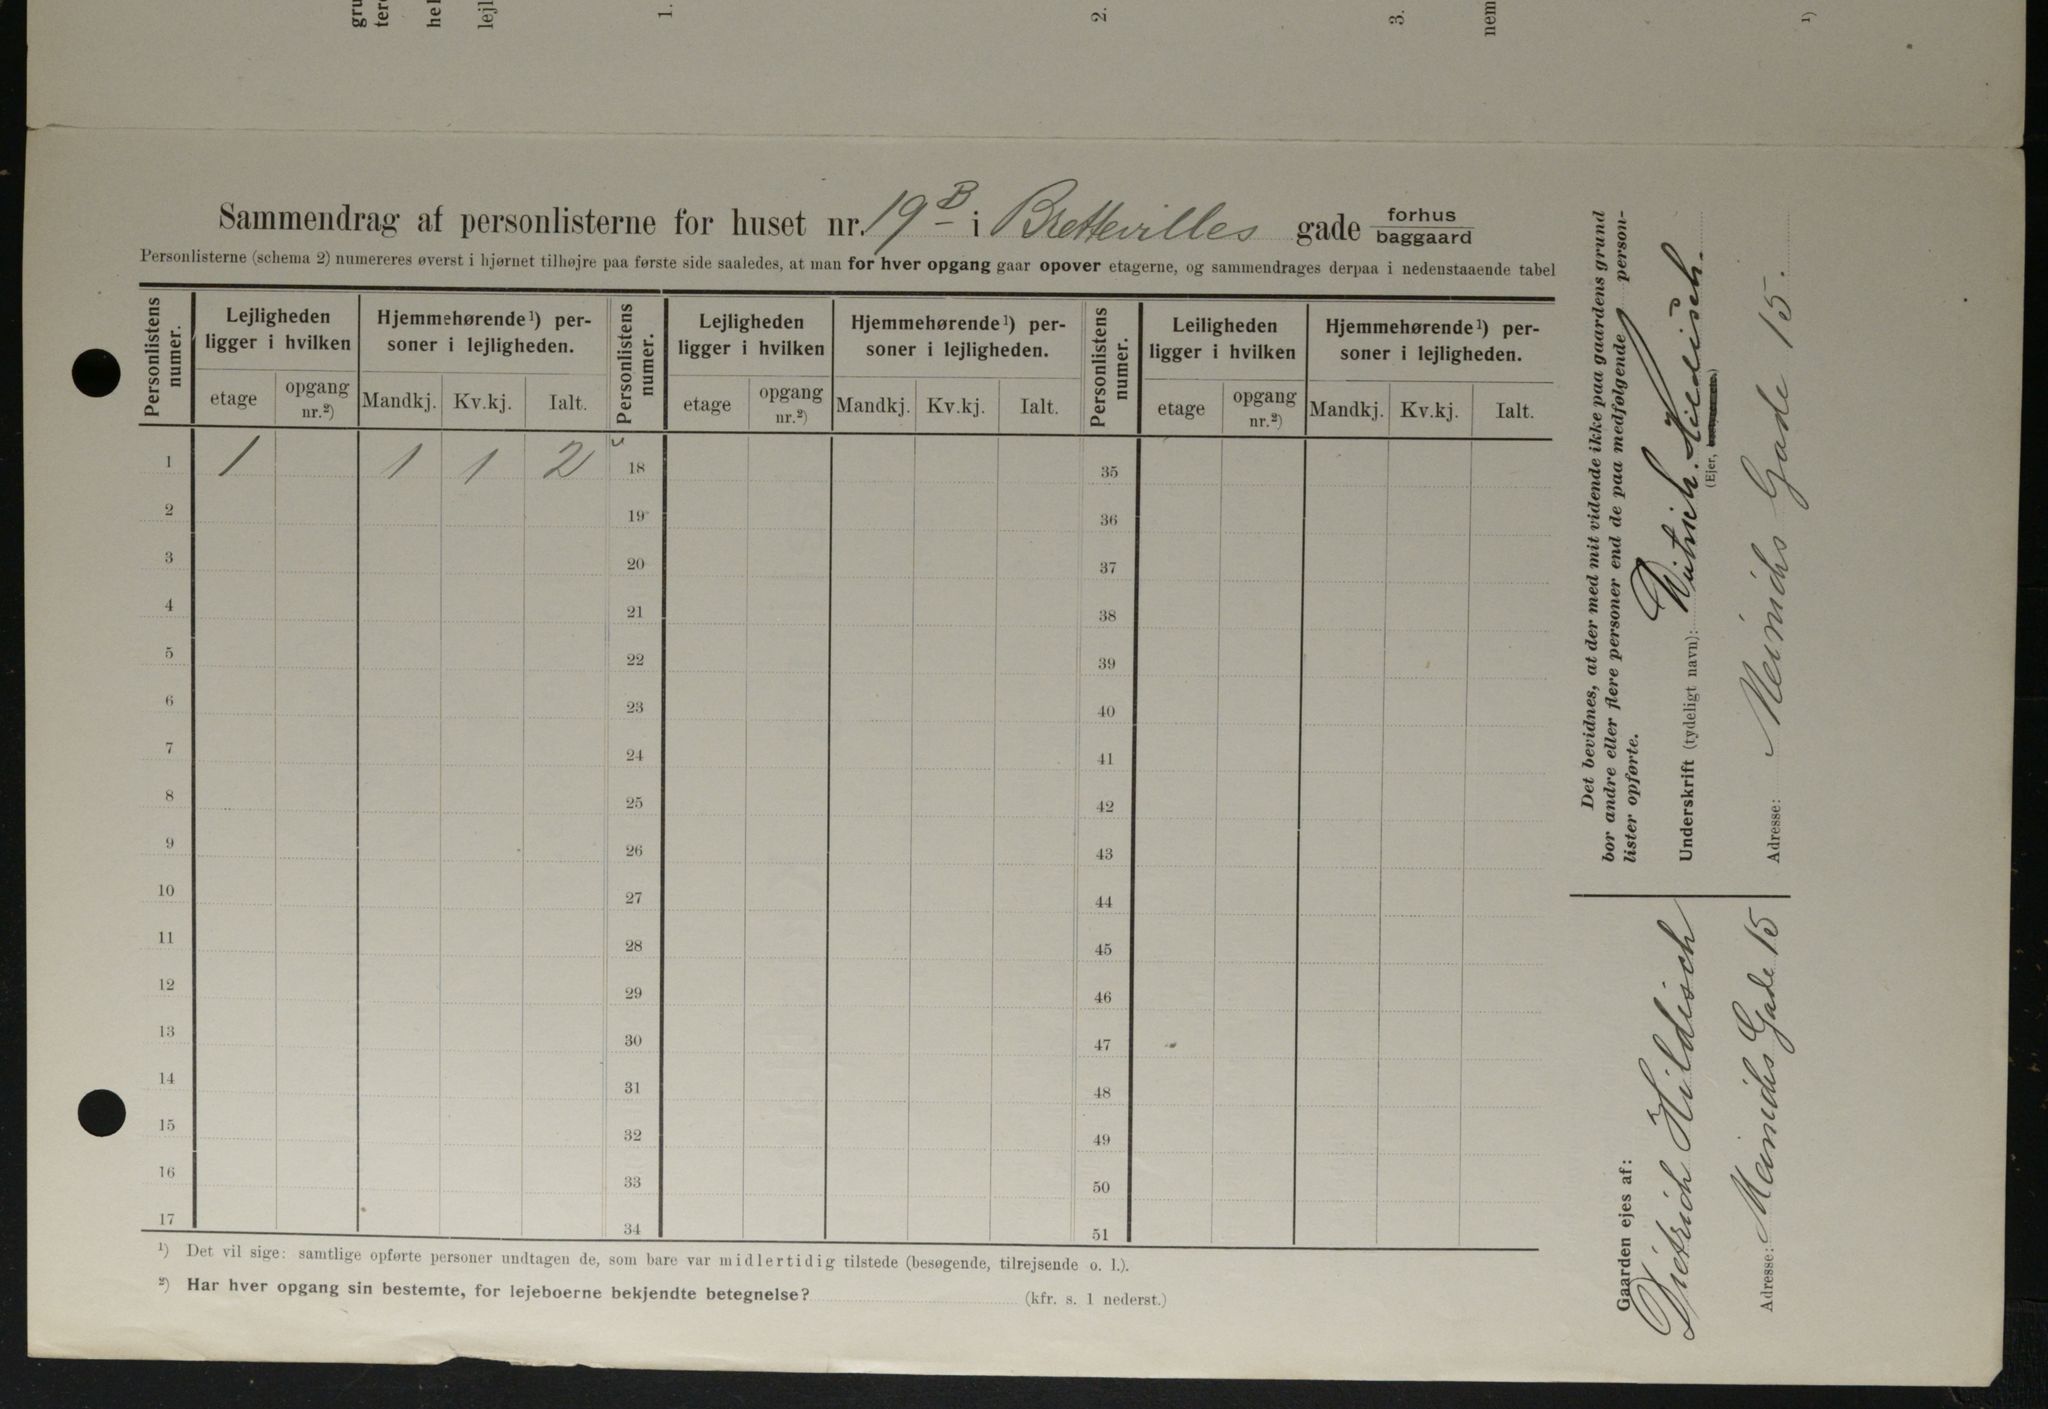 gru
tere
hel
lejl
1.
2.
3.
nem
1)
Sammendrag af personlisterne for huset nr. 19 B i Brettevilles gade forhus
baggaard
Personlisterne (schema 2) numereres øverst i hjørnet tilhøjre paa første side saaledes, at man for hver opgang gaar opover etagerne, og sammendrages derpaa i nedenstaaende tabel
Personlistens numer.
Lejligheden ligger i hvilken
etage
opgang nr.²)
Hjemmehørende¹) per-
soner i lejligheden.
Mandkj.
Kv.kj.
Ialt.
Personlistens numer.
Lejligheden ligger i hvilken
etage
opgang nr.²)
Hjemmehørende¹) per-
soner i lejligheden.
Mandkj.
Kv.kj.
Ialt.
Personlistens numer.
Leiligheden ligger i hvilken
etage
opgang nr.²)
Hjemmehørende¹) per-
soner i lejligheden.
Mandkj.
Kv.kj.
Ialt.
1 1 1 1 2 18 35
2 19 36
3 20 37
4 21 38
5 22 39
6 23 40
7 24 41
8 25 42
9 26 43
10 27 44
11 28 45
12 29 46
13 30 47
14 31 48
15 32 49
16 33 50
17 34 51
¹) Det vil sige: samtlige opførte personer undtagen de, som bare var midlertidig tilstede (besøgende, tilrejsende o. l.).
²) Har hver opgang sin bestemte, for lejeboerne bekjendte betegnelse? (kfr. s. 1 nederst.)
Det bevidnes, at der med mit vidende ikke paa gaardens grund
bor andre eller flere personer end de paa medfølgende person-
lister opførte.
Underskrift (tydeligt navn): Dietrich Hildisch.
(Ejer,
Adresse: Meinichs Gade 15.
Gaarden ejes af:
Dietrich Hildisch
Adresse: Meinichs Gade 15